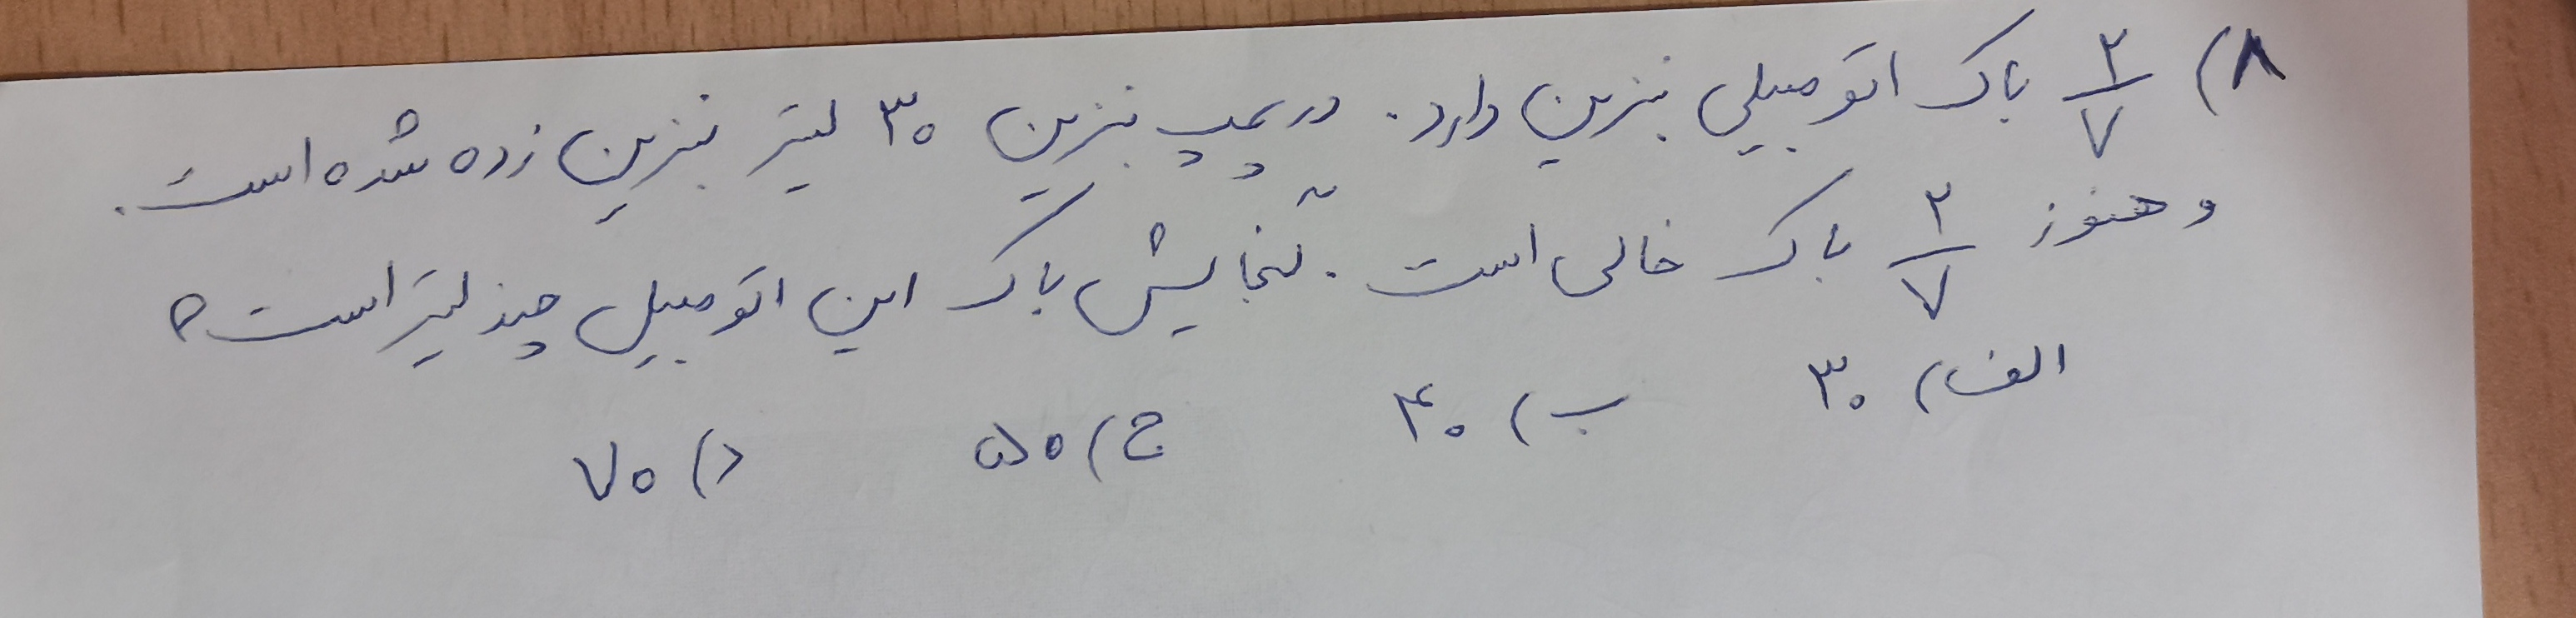 ۸) ۲/۷ باک اتومبیلی بنزین دارد. در پمپ بنزین ۳۰ لیتر بنزین زده شده است.
و هنوز ۲/۷ باک خالی است. گنجایش باک این اتومبیل چند لیتر است؟
الف) ۳۰ ب) ۴۰ ج) ۵۰ د) ۷۰